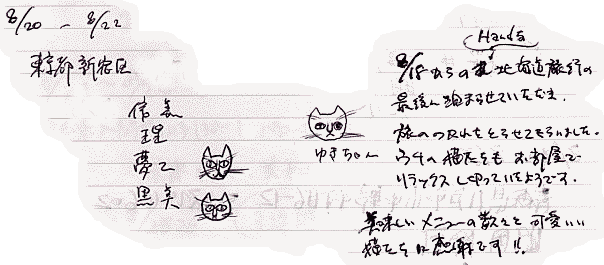 8/20 ~ 8/22
東京都新宿区
信
理
夢
黒美
ゆきちゃん
8/18からの 北海道旅行の
最後に泊まらせていただき、
旅のつかれをとらせてもらいました。
ウチの猫たちも お部屋で
リラックス していたようです。
美味しいメニューの数々と可愛いい
猫たちに感謝です!!